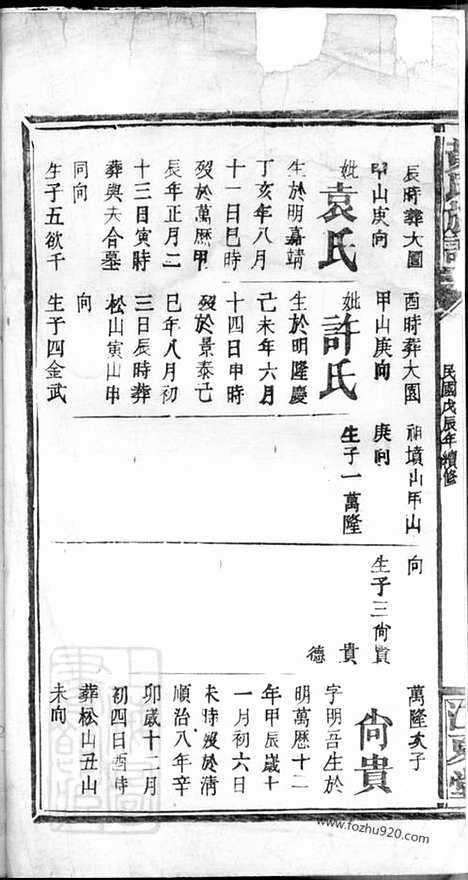 民國戊辰年續修
辰時葬大園
甲山庚向
妣袁氏
生於明嘉靖
丁亥年八月
十一日巳時
歿於萬厯甲
辰年正月二
十三日寅時
葬與夫合墓
同向
生子五欲千
酉時葬大園
甲山庚向
妣許氏
生於明隆慶
己未年六月
十四日申時
歿於景泰己
巳年八月初
三日辰時葬
松山寅山申
向
生子四金武
祖墳山甲山
庚向
生子一萬隆
向
生子三尚賢
貴
德
萬隆次子
尚貴
字明吾生於
明萬厯十二
年甲辰歲十
一月初六日
未時歿於清
順治八年辛
卯歲十二月
初四日酉時
葬松山丑山
未向
www.fozhu920.com